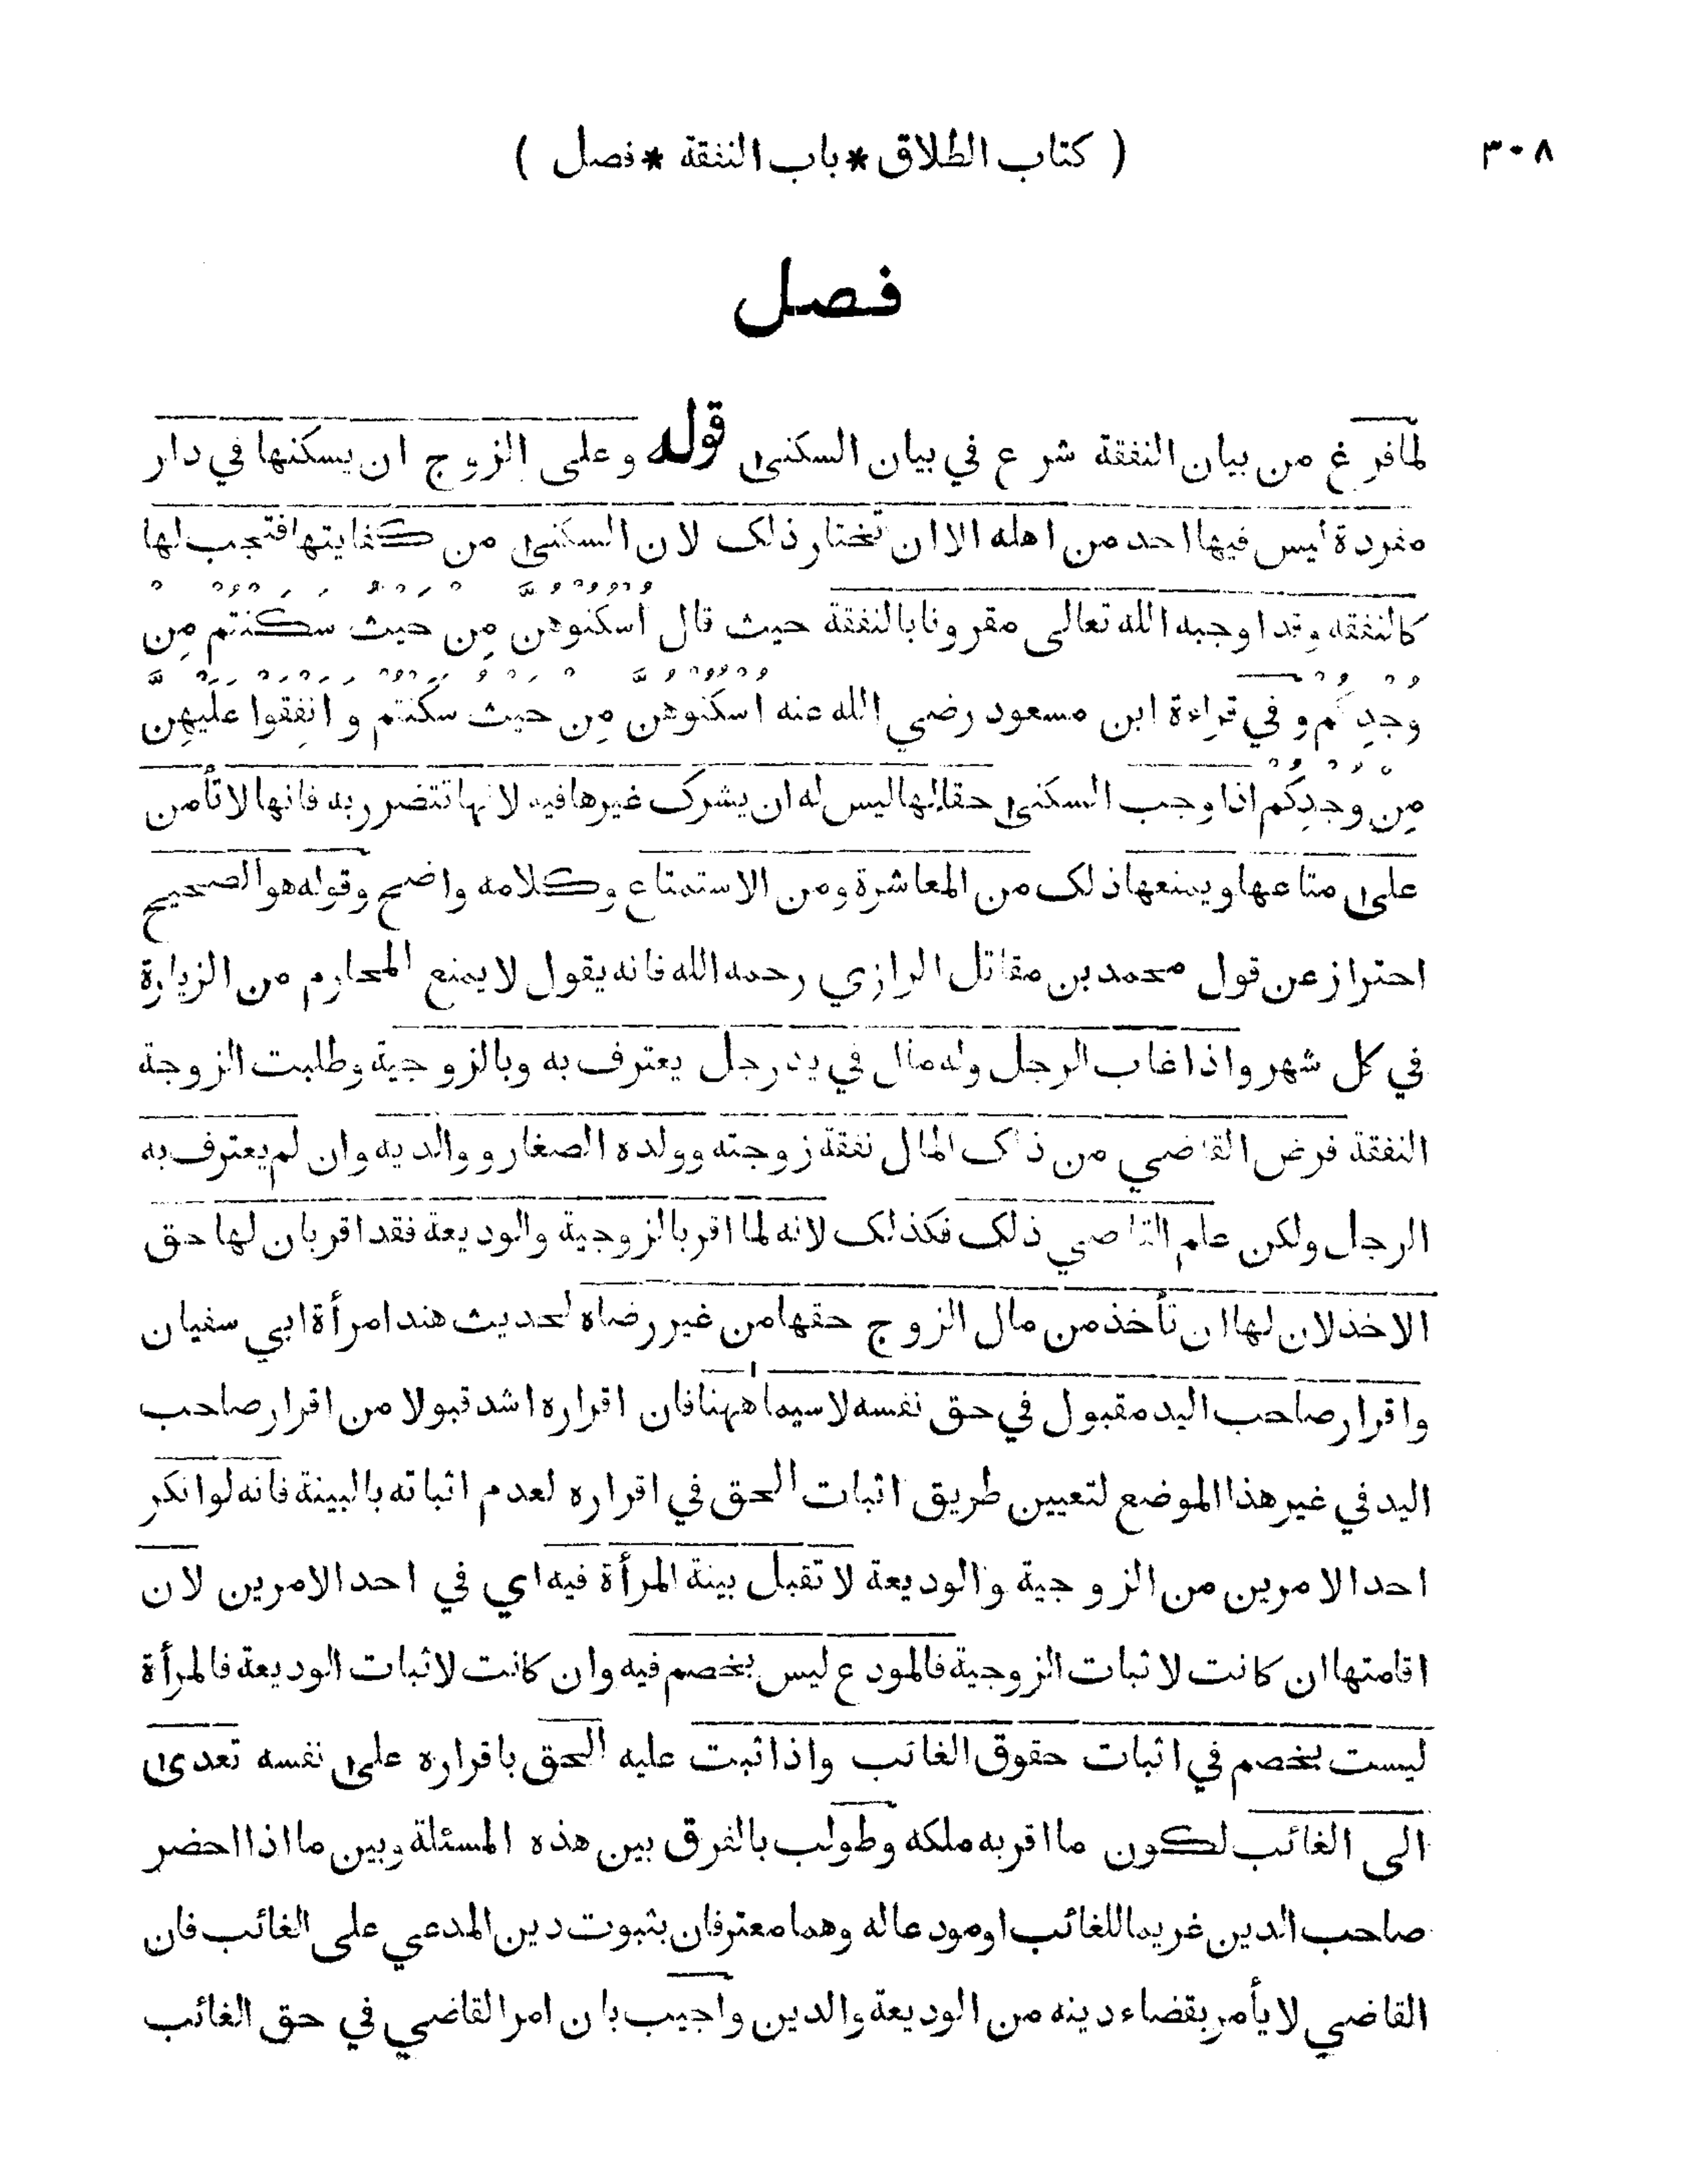 ( كتاب الطلاق * باب النفقة * فصل ) ٣٠٨
فصل
لما فرغ من بيان النفقة شرع في بيان السكنى قوله وعلى الزوج ان يسكنها في دار
مفردة ليس فيها احد من اهله الا ان تختار ذلك لان السكنى من كفايتها فتجب لها
كالنفقه وقد اوجبه الله تعالى مقرونا بالنفقة حيث قال اَسْكِنُوهُنَّ مِنْ حَيْثُ سَكَنْتُمْ مِنْ
وُجْدِكُمْ وفي قراءة ابن مسعود رضي الله عنه اَسْكِنُوهُنَّ مِنْ حَيْثُ سَكَنْتُمْ وَ اَنْفِقُوا عَلَيْهِنَّ
مِنْ وُجْدِكُمْ اذا وجب السكنى حقا لها ليس له ان يشرك غيرها فيه لانها تتضرر به فانها لا تأمن
على متاعها ويمنعها ذلك من المعاشرة ومن الاستمتاع وكلامه واضح وقوله هو الصحيح
احتراز عن قول محمد بن مقاتل الرازي رحمه الله فانه يقول لا يمنع المحارم من الزيارة
في كل شهر واذا غاب الرجل وله مال في يد رجل يعترف به وبالزوجية وطلبت الزوجة
النفقة فرض القاضي من ذلك المال نفقة زوجته وولده الصغار ووالديه وان لم يعترف به
الرجل ولكن علم القاضي ذلك فكذلك لانه لما اقر بالزوجية والوديعة فقد اقر بان لها حق
الاخذ لان لها ان تأخذ من مال الزوج حقها من غير رضاه لحديث هند امرأة ابي سفيان
واقرار صاحب اليد مقبول في حق نفسه لا سيما ههنا فان اقراره اشد قبولا من اقرار صاحب
اليد في غير هذا الموضع لتعيين طريق اثبات الحق في اقراره لعدم اثباته بالبينة فانه لو انكر
احد الامرين من الزوجية والوديعة لا تقبل بينة المرأة فيه اي في احد الامرين لان
اقامتها ان كانت لاثبات الزوجية فالمودع ليس بخصم فيه وان كانت لاثبات الوديعة فالمرأة
ليست بخصم في اثبات حقوق الغائب واذا ثبت عليه الحق باقراره على نفسه تعدى
الى الغائب لكون ما اقر به ملكه وطولب بالفرق بين هذه المسئلة وبين ما اذا احضر
صاحب الدين غريما للغائب او مودعا له وهما معترفان بثبوت دين المدعي على الغائب فان
القاضي لا يأمر بقضاء دينه من الوديعة والدين واجيب بان امر القاضي في حق الغائب